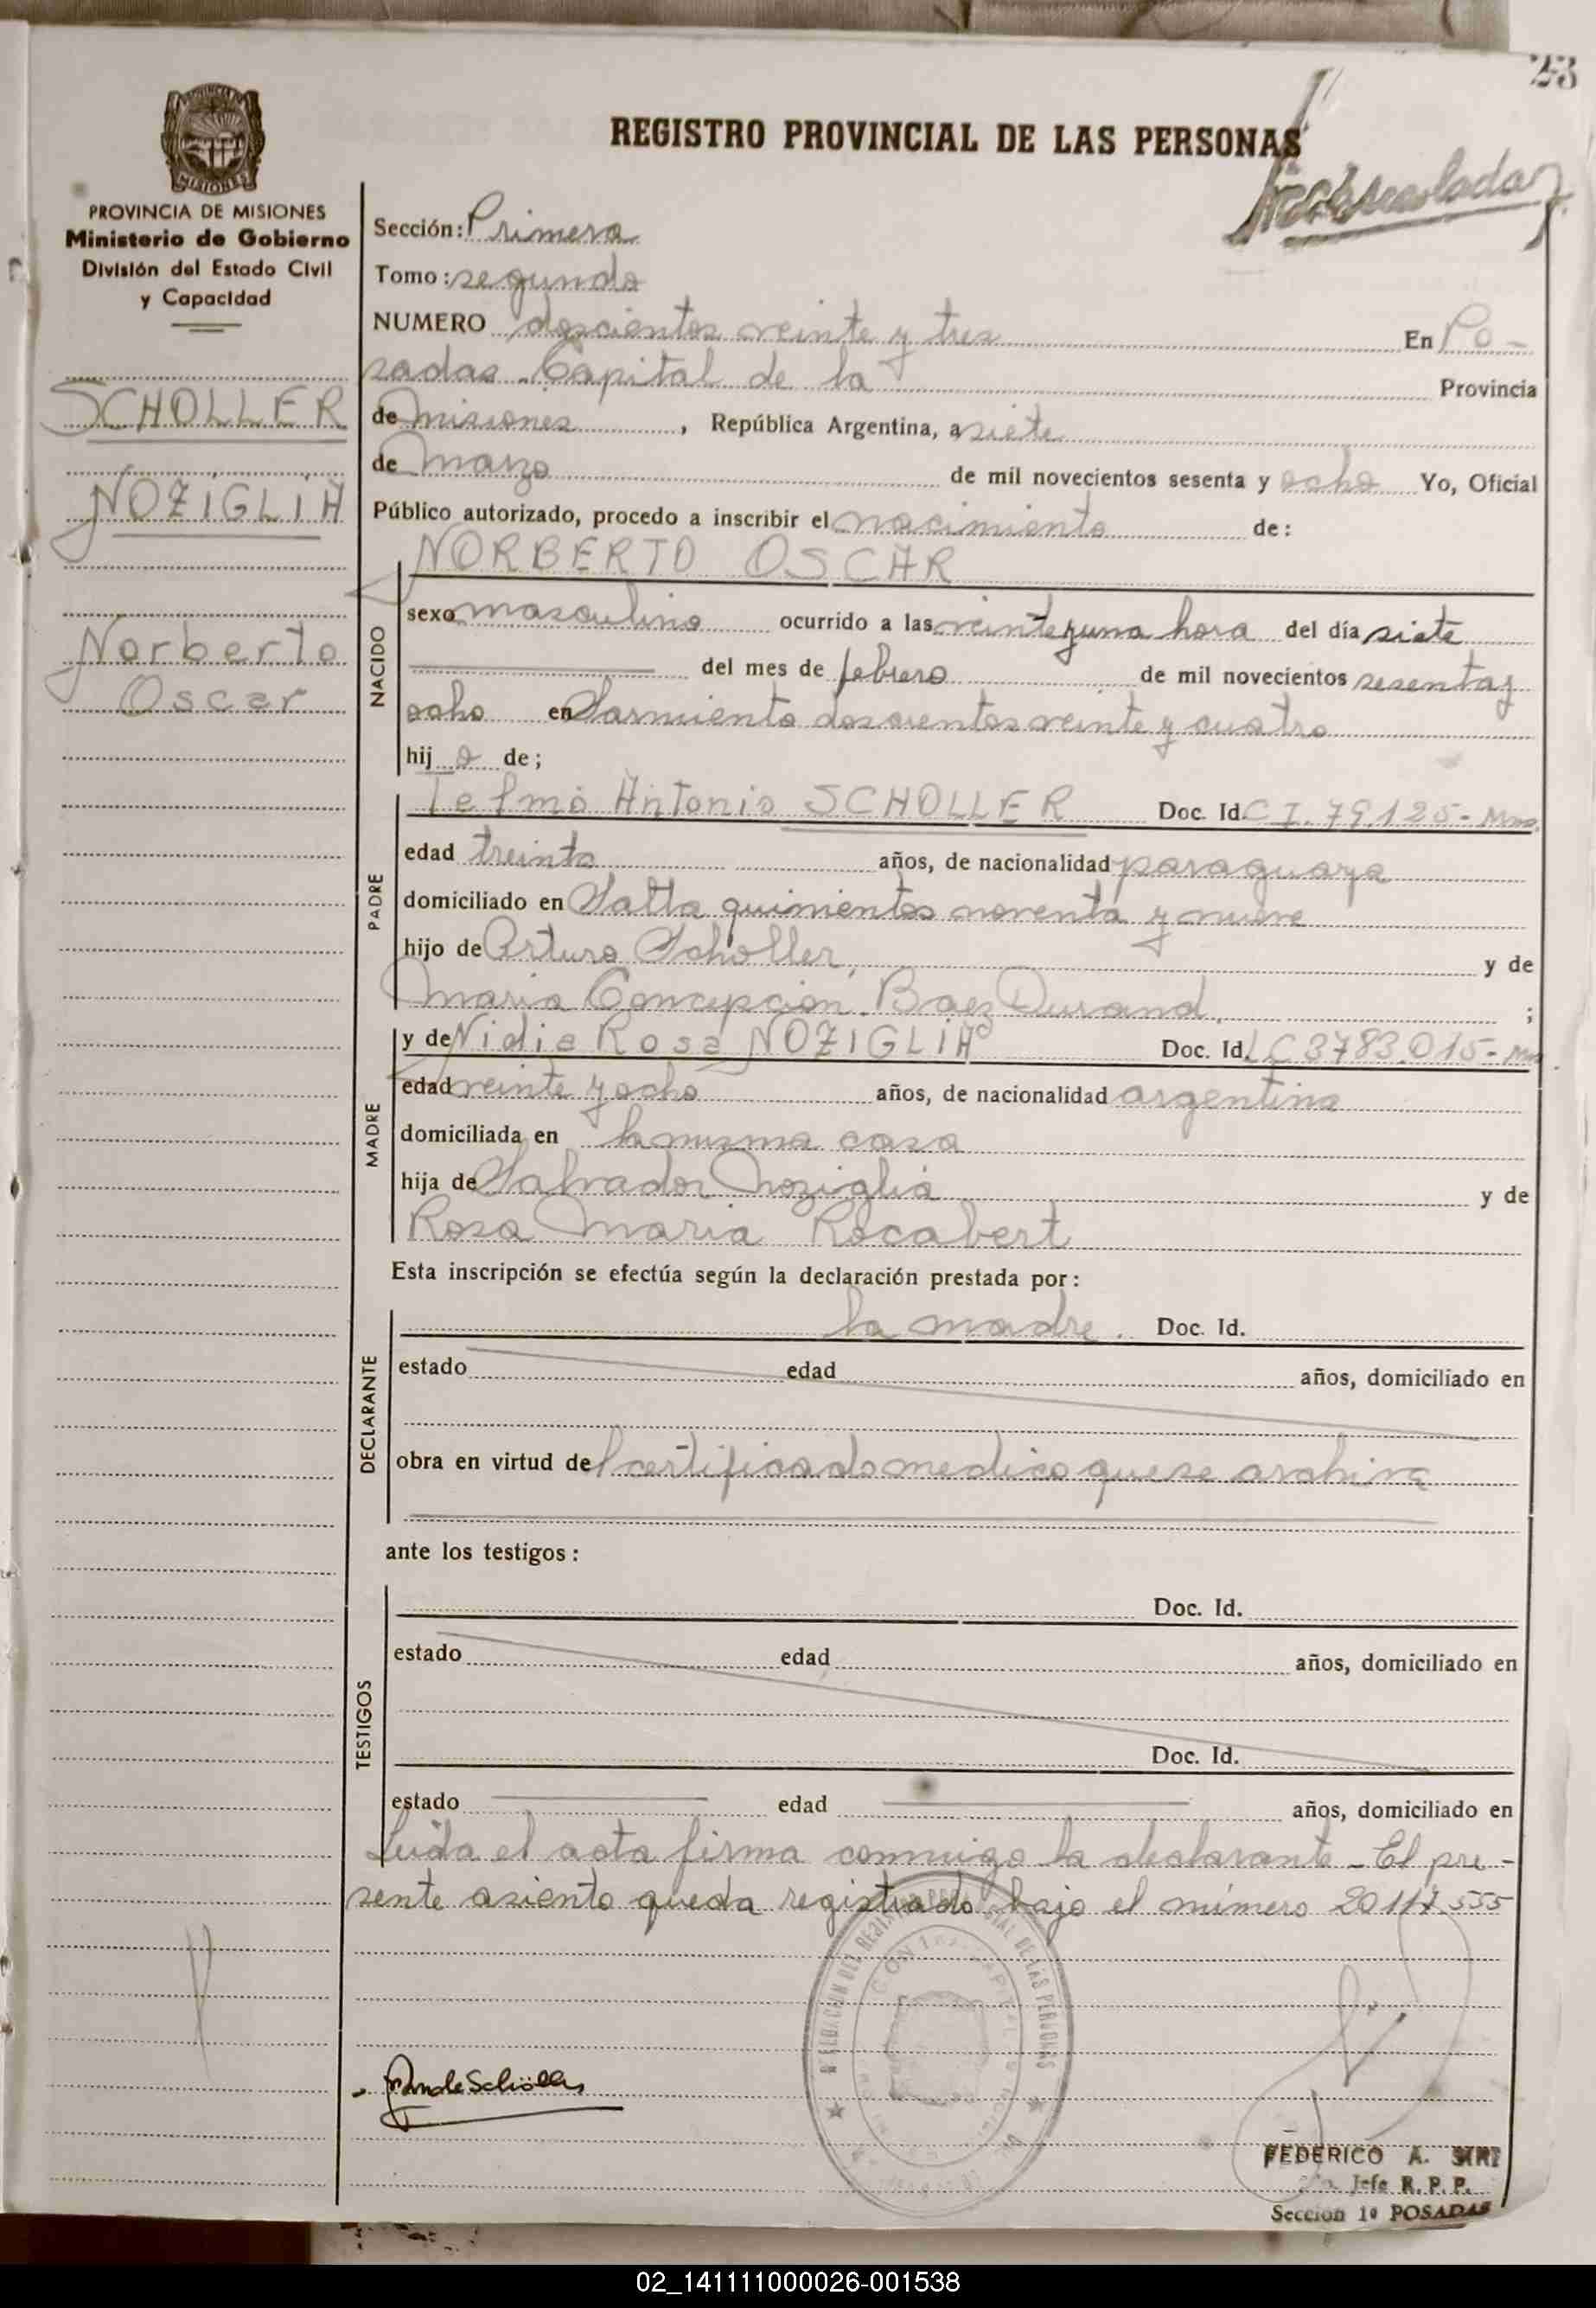 23
REGISTRO PROVINCIAL DE LAS PERSONAS
MISIONES
PROVINCIA DE MISIONES
Ministerio de Gobierno
División del Estado Civil
y Capacidad
SCHOLLER
NOZIGLIA
Norberto
Oscar
Sección: Primera
Tomo: segundo
NUMERO doscientos veinte y tres En Po-
sadas. Capital de la Provincia
de Misiones, República Argentina, a siete
de Marzo de mil novecientos sesenta y ocho Yo, Oficial
Público autorizado, procedo a inscribir el nacimiento de:
NORBERTO OSCAR
NACIDO
sexo masculino ocurrido a las veinte y una hora del día siete
del mes de febrero de mil novecientos sesenta y
ocho en Sarmiento doscientos veinte y cuatro
hij o de;
PADRE
Telmo Antonio SCHOLLER Doc. Id. C I. 79.125- Mnes.
edad treinta años, de nacionalidad paraguaya
domiciliado en Salta quinientos noventa y nueve
hijo de Arturo Scholler, y de
Maria Concepción Baez Durand. ;
MADRE
y de Nidia Rosa NOZIGLIA Doc. Id. L C 3783.015-
edad veinte y ocho años, de nacionalidad argentina
domiciliada en la misma casa
hija de Salvador Noziglia y de
Rosa Maria Rocabert
Esta inscripción se efectúa según la declaración prestada por:
DECLARANTE
la madre. Doc. Id.
estado edad años, domiciliado en
obra en virtud del certificado medico que se archiva
ante los testigos:
TESTIGOS
Doc. Id.
estado edad años, domiciliado en
Doc. Id.
estado edad años, domiciliado en
Leida el acta firma conmigo la declarante - El pre-
sente asiento queda registrado bajo el número 20.117.555
FEDERICO A.
Jefe R. P. P.
Sección 1ª POSADAS
02_141111000026-001538